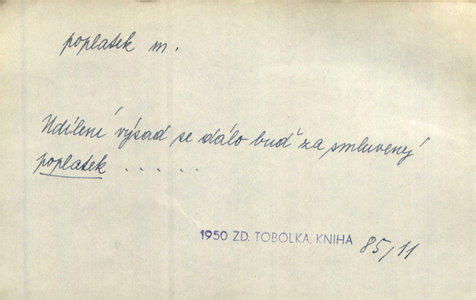 poplatek m.
Udílení výsad se dálo buď za smluvený
poplatek . . . . .
1950 ZD. TOBOLKA, KNIHA 85/11